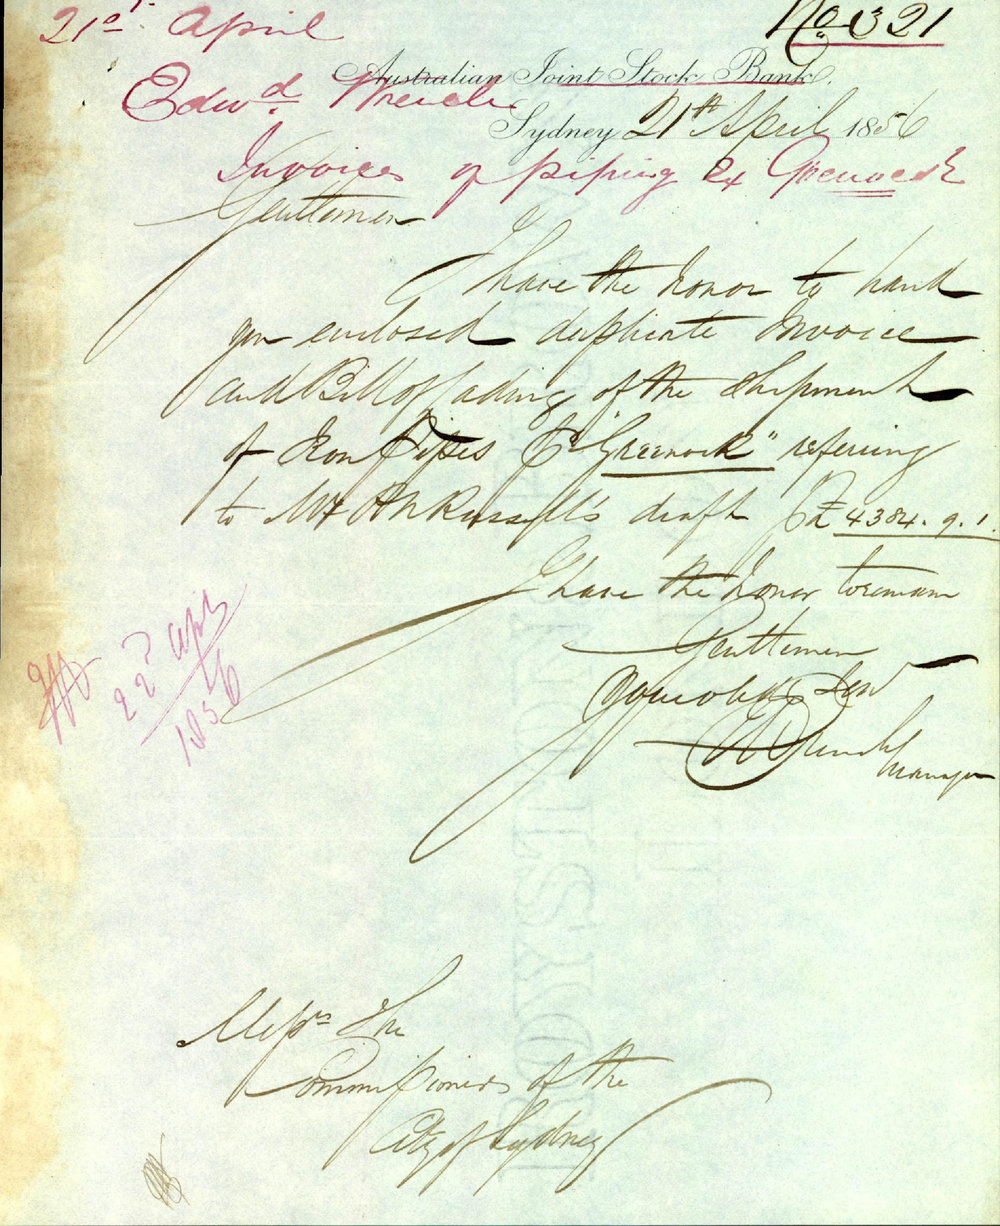 21st April
No. 321
Australian Joint Stock Bank.
Edwd.
Sydney 21st April 1856
Invoices of piping ex Greenock
Gentlemen
I have the honor to hand
you enclosed duplicate Invoice
and Bill of Lading of the Shipment
of Iron Pipes Pr "Greenock" referring
to Mr Russell's draft £4384.9.1.
I have the honor to remain
Gentlemen
Your obedt Serv
Manager
22d April
1856
Messrs The
Commissioners of the
City of Sydney